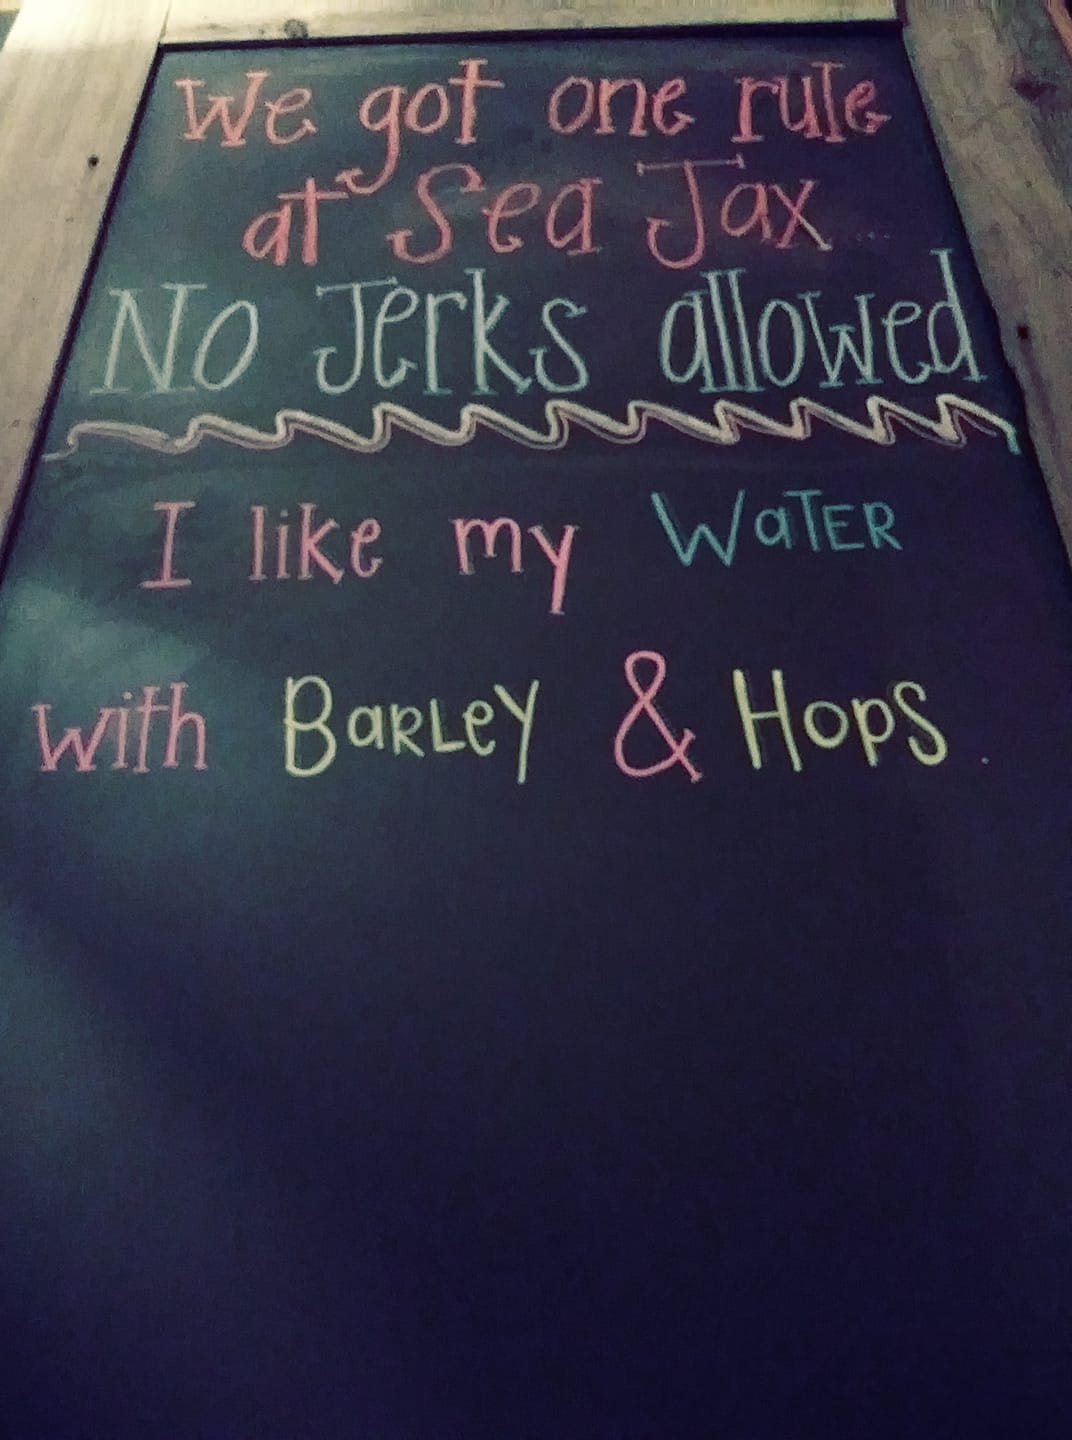 We got one rule
at Sea Jax...
No Jerks allowed
I like my WaTER
with BaRLeY & HoPS.